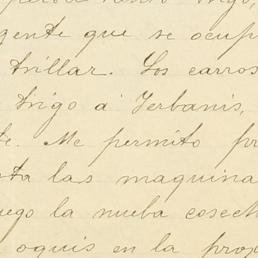 gente que se ocup
trillar. Los carros
trigo á Yerbanis,
te. Me permito pr
sta las maquina
uego la nueba cosech
oquis en la prop